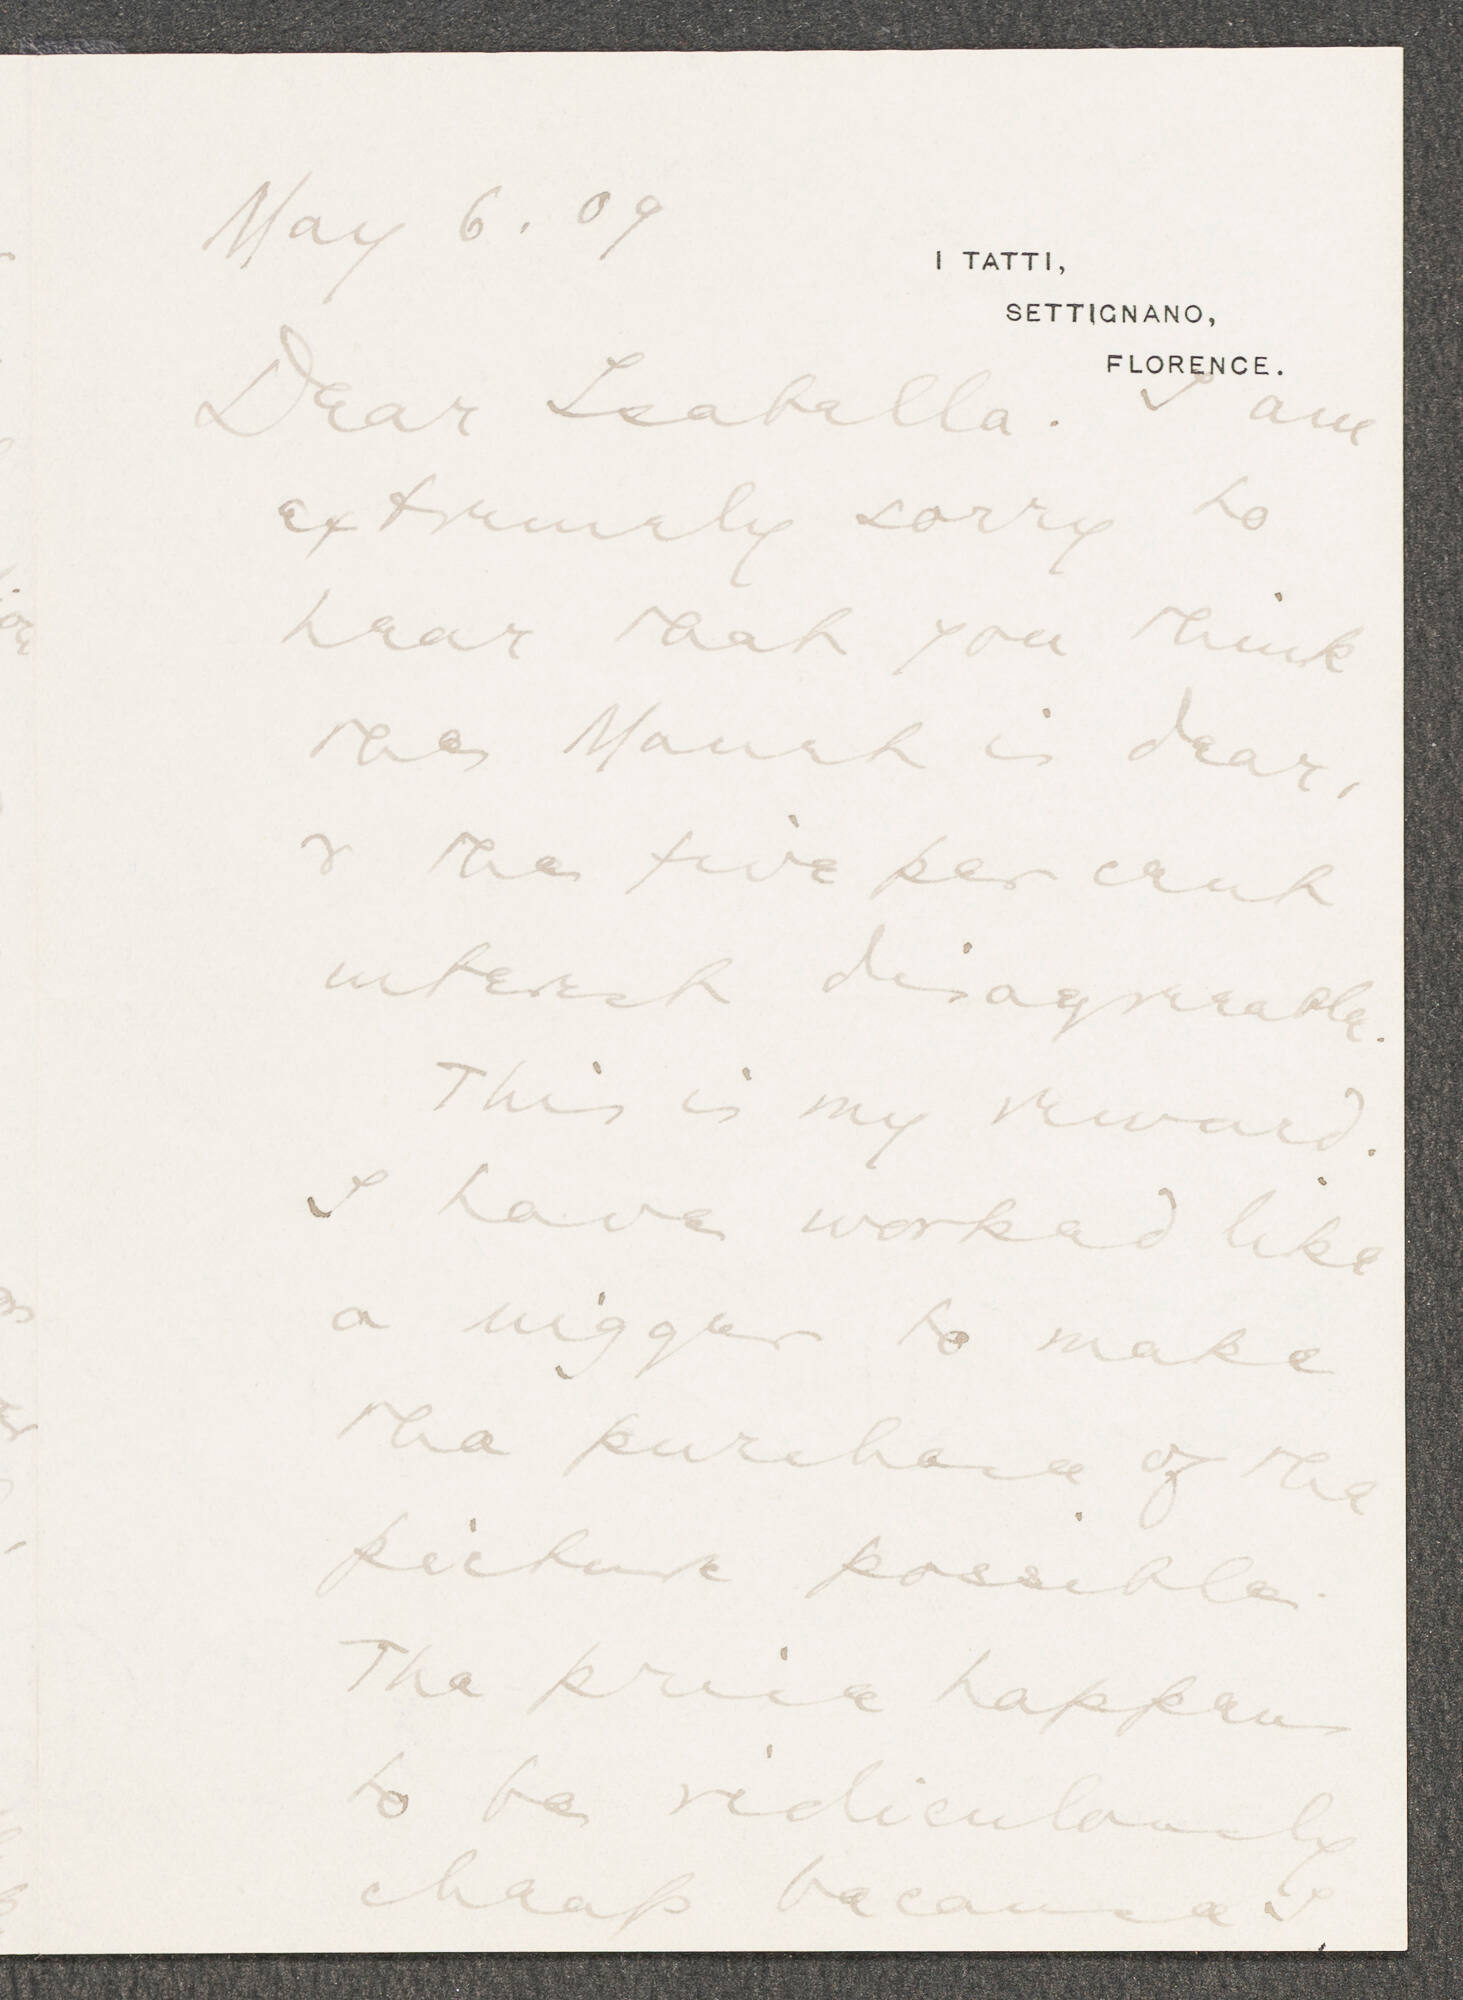 May 6. 09
I TATTI,
SETTIGNANO,
FLORENCE.
Dear Isabella. I am
extremely sorry to
hear that you think
the Manet is dear,
& the five per cent
interest disagreeable.
This is my reward.
I have worked like
a nigger to make
the purchase of the
picture possible.
The price happens
to be ridiculously
cheap because I